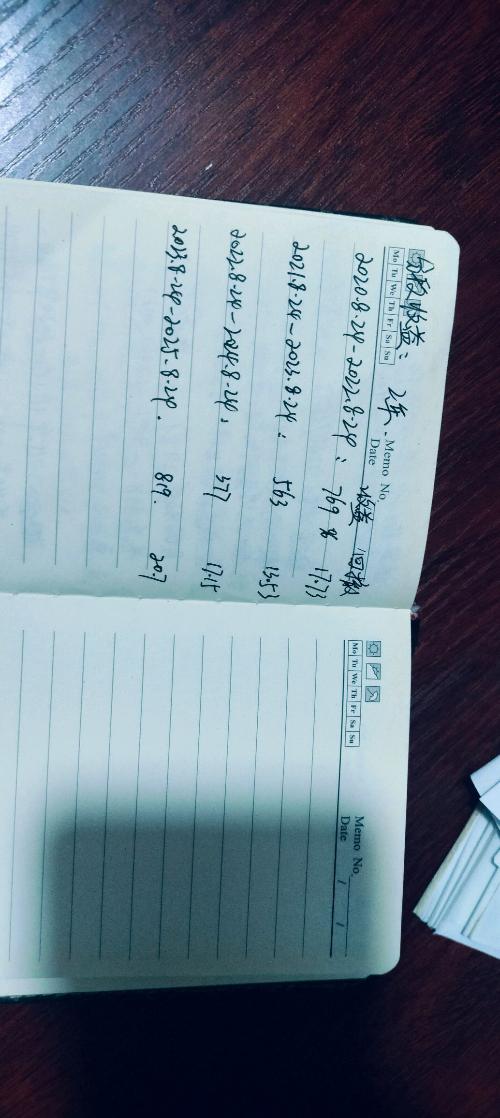 Mo Tu We Th Fr Sa Su
Memo No.
Date
分段收益: 2年.
收益 回撤
2020.8.24-2022.8.24: 769% 17.73
2021.8.24-2023.8.24: 563 13.53
2022.8.24-2024.8.24: 577 17.15
2023.8.24-2025.8.24. 819. 20.7
Mo Tu We Th Fr Sa Su
Memo No.
Date / /